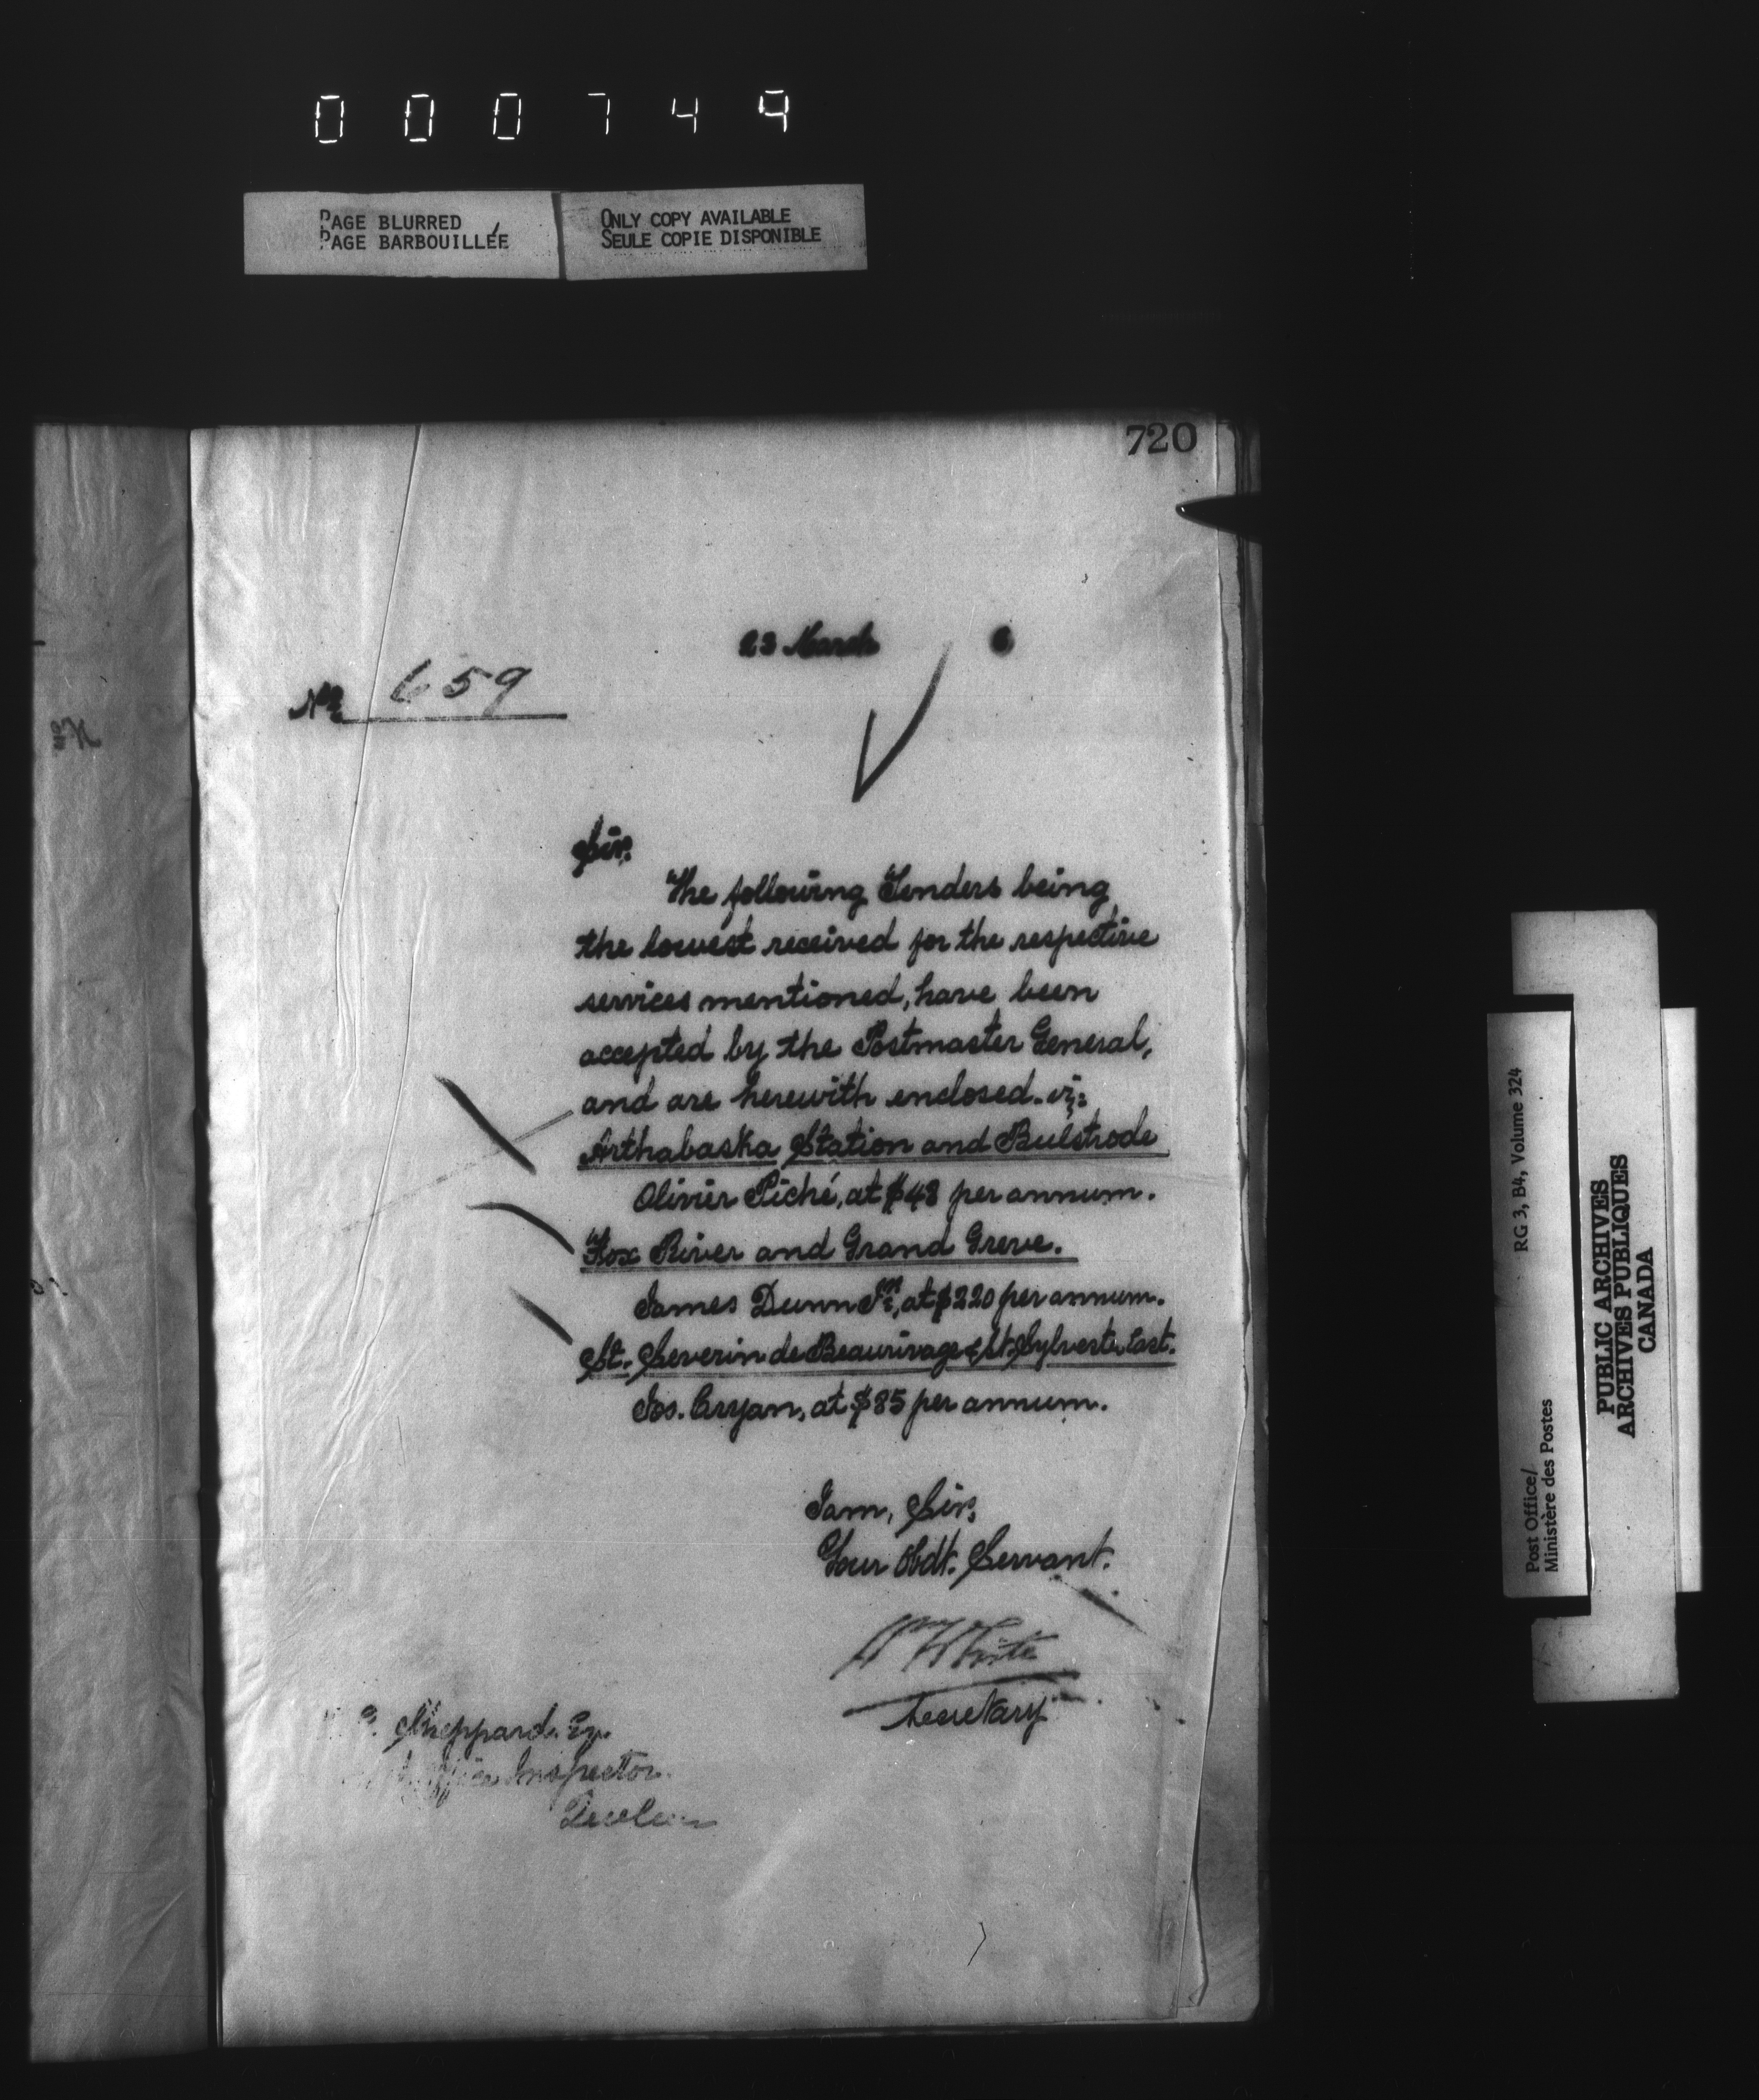 000749
PAGE BLURRED
PAGE BARBOUILLÉE
ONLY COPY AVAILABLE
SEULE COPIE DISPONIBLE
720
23 March 6
No. 659
Sir,
The following Tenders being
the lowest received for the respective
services mentioned, have been
accepted by the Postmaster General,
and are herewith enclosed. viz:
Arthabaska Station and Bulstrode
Olivier Piché, at $48 per annum.
Fox River and Grand Greve.
James Dunn Sr, at $220 per annum.
St. Severin de Beaurivage & St. Sylvester East.
Jos. Cryan, at $85 per annum.
I am, Sir,
Your Obdt. Servant.
Wm White
Secretary
Sheppard. Esq.
Office Inspector
Quebec
RG 3, B4, Volume 324
Post Office/
Ministère des Postes
PUBLIC ARCHIVES
ARCHIVES PUBLIQUES
CANADA